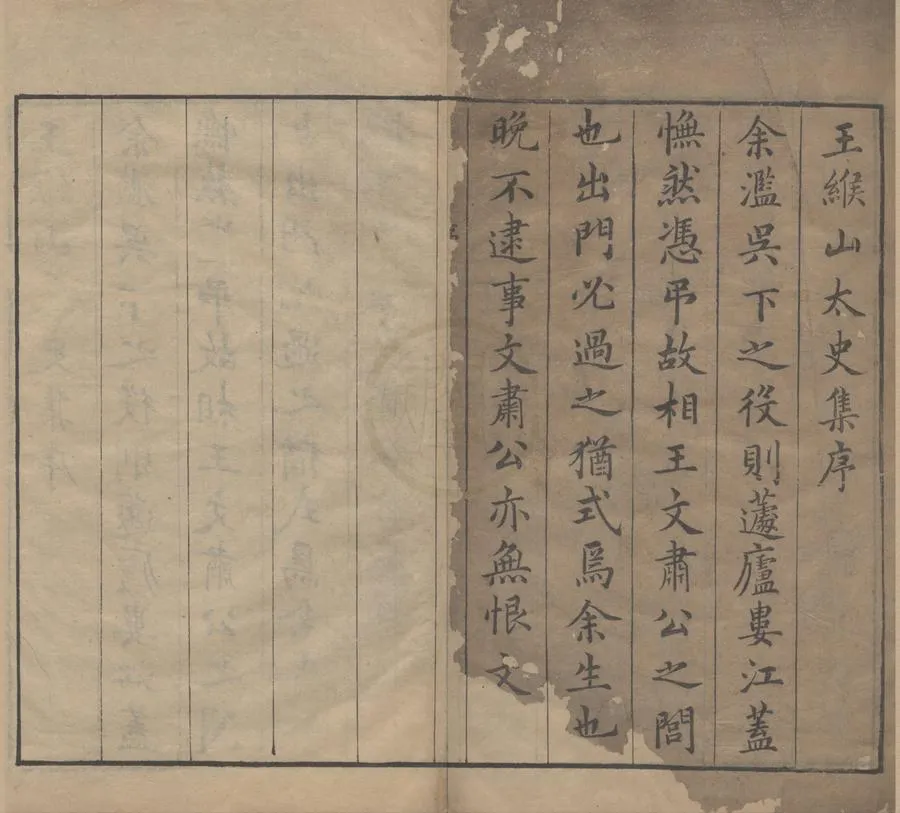 王緱山太史集序
余濫吳下之役則蘧廬婁江蓋
憮然憑弔故相王文肅公之閭
也出門必過之猶式焉余生也
晚不逮事文肅公亦無恨文